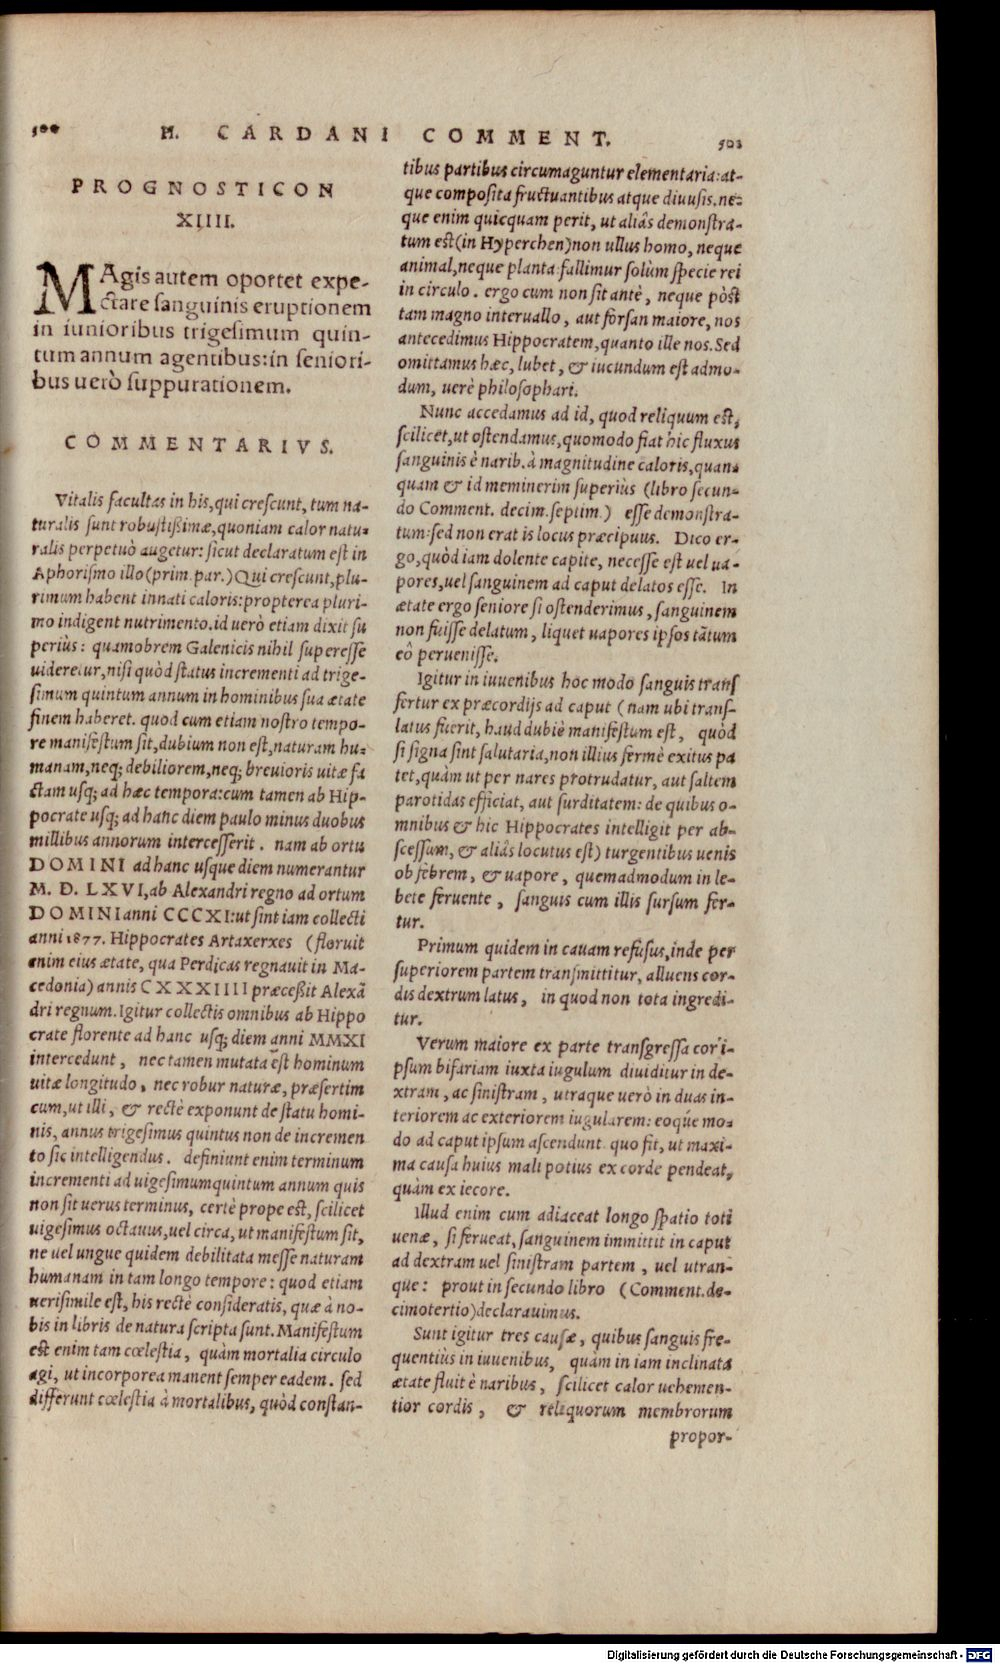 500 H. CARDANI COMMENT. 503
PROGNOSTICON
XIIII.
MAgis autem oportet expe-
ctare sanguinis eruptionem
in iunioribus trigesimum quin-
tum annum agentibus: in seniori-
bus uerò suppurationem.
COMMENTARIVS.
Vitalis facultas in his, qui crescunt, tum na-
turalis sunt robustißimæ, quoniam calor natu-
ralis perpetuò augetur: sicut declaratum est in
Aphorismo illo (prim. par.) Qui crescunt, plu-
rimum habent innati caloris: propterea pluri-
mo indigent nutrimento. id uerò etiam dixit su
periùs: quamobrem Galenicis nihil superesse
uideretur, nisi quòd status incrementi ad trige-
simum quintum annum in hominibus sua ætate
finem haberet. quod cum etiam nostro tempo-
re manifestum sit, dubium non est, naturam hu-
manam, neq; debiliorem, neq; breuioris uitæ fa
ctam usq; ad hæc tempora: cum tamen ab Hip-
pocrate usq; ad hanc diem paulo minus duobus
millibus annorum intercesserit. nam ab ortu
DOMINI ad hanc usque diem numerantur
M. D. LXVI, ab Alexandri regno ad ortum
DOMINI anni CCCXI: ut sint iam collecti
anni 1877. Hippocrates Artaxerxes (floruit
enim eius ætate, qua Perdicas regnauit in Ma-
cedonia) annis CXXXIIII præceßit Alexã
dri regnum. Igitur collectis omnibus ab Hippo
crate florente ad hanc usq; diem anni MMXI
intercedunt, nec tamen mutata est hominum
uitæ longitudo, nec robur naturæ, præsertim
cum, ut illi, & rectè exponunt de statu homi-
nis, annus trigesimus quintus non de incremen
to sic intelligendus. definiunt enim terminum
incrementi ad uigesimumquintum annum quis
non sit uerus terminus, certè prope est, scilicet
uigesimus octauus, uel circa, ut manifestum sit,
ne uel ungue quidem debilitata messe naturam
humanam in tam longo tempore: quod etiam
uerisimile est, his rectè consideratis, quæ à no-
bis in libris de natura scripta sunt. Manifestum
est enim tam cœlestia, quàm mortalia circulo
agi, ut incorporea manent semper eadem. sed
differunt cœlestia à mortalibus, quòd constan-
tibus partibus circumaguntur elementaria: at-
que composita fructuantibus atque diuusis. ne-
que enim quicquam perit, ut aliâs demonstra-
tum est (in Hyperchen) non ullus homo, neque
animal, neque planta: fallimur solùm specie rei
in circulo. ergo cum non sit antè, neque pòst
tam magno interuallo, aut forsan maiore, nos
antecedimus Hippocratem, quanto ille nos. Sed
omittamus hæc, lubet, & iucundum est admo-
dum, uerè philosophari.
Nunc accedamus ad id, quod reliquum est,
scilicet, ut ostendamus, quomodo fiat hic fluxus
sanguinis è narib. à magnitudine caloris, quan-
quam & id meminerim superiùs (libro secun-
do Comment. decim. septim.) esse demonstra-
tum: sed non erat is locus præcipuus. Dico er-
go, quòd iam dolente capite, necesse est uel ua-
pores, uel sanguinem ad caput delatos esse. In
ætate ergo seniore si ostenderimus, sanguinem
non fuisse delatum, liquet uapores ipsos tãtum
eô peruenisse.
Igitur in iuuenibus hoc modo sanguis trans
fertur ex præcordijs ad caput (nam ubi trans-
latus fuerit, haud dubiè manifestum est, quòd
si signa sint salutaria, non illius fermè exitus pa
tet, quàm ut per nares protrudatur, aut saltem
parotidas efficiat, aut surditatem: de quibus o-
mnibus & hic Hippocrates intelligit per ab-
scessum, & aliâs locutus est) turgentibus uenis
ob febrem, & uapore, quemadmodum in le-
bete feruente, sanguis cum illis sursum fer-
tur.
Primum quidem in cauam refusus, inde per
superiorem partem transmittitur, alluens cor-
dis dextrum latus, in quod non tota ingredi-
tur.
Verum maiore ex parte transgressa cor i-
psum bifariam iuxta iugulum diuiditur in de-
xtram, ac sinistram, utraque uerò in duas in-
teriorem ac exteriorem iugularem: eoq́ue mo-
do ad caput ipsum ascendunt. quo fit, ut maxi-
ma causa huius mali potius ex corde pendeat,
quàm ex iecore.
Illud enim cum adiaceat longo spatio toti
uenæ, si ferueat, sanguinem immittit in caput
ad dextram uel sinistram partem, uel utran-
que: prout in secundo libro (Comment. de-
cimotertio) declarauimus.
Sunt igitur tres causæ, quibus sanguis fre-
quentiùs in iuuenibus, quàm in iam inclinata
ætate fluit è naribus, scilicet calor uehemen-
tior cordis, & reliquorum membrorum
propor-
Digitalisierung gefördert durch die Deutsche Forschungsgemeinschaft - DFG